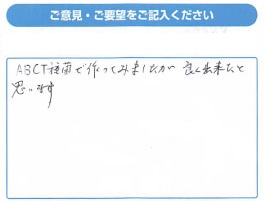 ご意見・ご要望をご記入ください
ABCT種菌で作ってみましたが 良く出来たと
思います